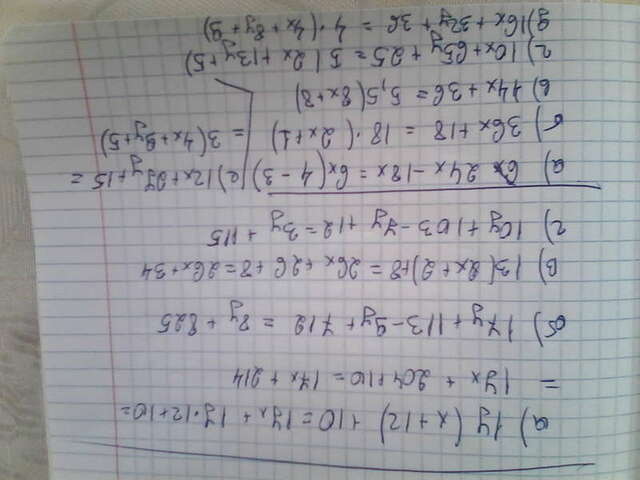 а) 17(x + 12) + 10 = 17x + 17·12 + 10 =
= 17x + 204 + 10 = 17x + 214
б) 17y + 113 - 9y + 712 = 8y + 825
в) 13(2x + 2) + 8 = 26x + 26 + 8 = 26x + 34
г) 10y + 103 - 7y + 12 = 3y + 115
а) 24x - 18x = 6x(4 - 3)
б) 36x + 18 = 18·(2x + 1)
в) 44x + 36 = 5,5(8x + 8)
г) 10x + 65y + 25 = 5(2x + 13y + 5)
д) 16x + 32y + 36 = 4·(4x + 8y + 9)
е) 12x + 27y + 15 =
= 3(4x + 9y + 5)